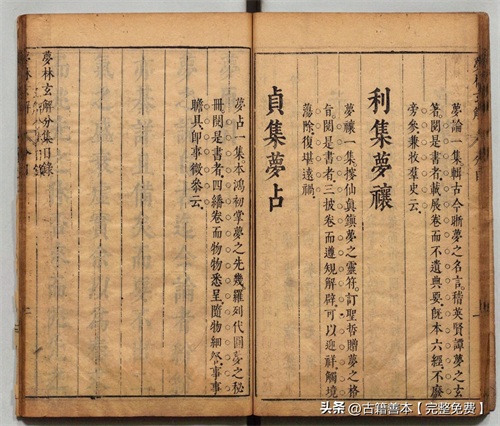 夢論一集輯古今晰夢之名言稽英賢譚夢之玄
著閱是書者載展卷而不遺典要既本六經不廢
旁矣兼收羣史云
利集夢禳
夢禳一集搜仙真鎮夢之靈符訂聖哲贈夢之格
旨閱是書者三披卷而遵規解辟可以迎祥觸境
蕩除復堪遠禍
貞集夢占
夢占一集本鴻初掌夢之先幾羅列代圓夢之秘
冊閱是書者四繙卷而物物悉呈隨物細祭事事
瞻具即事徵叅云
夢林玄解分集目錄
头条 @古籍善本【完整免费】